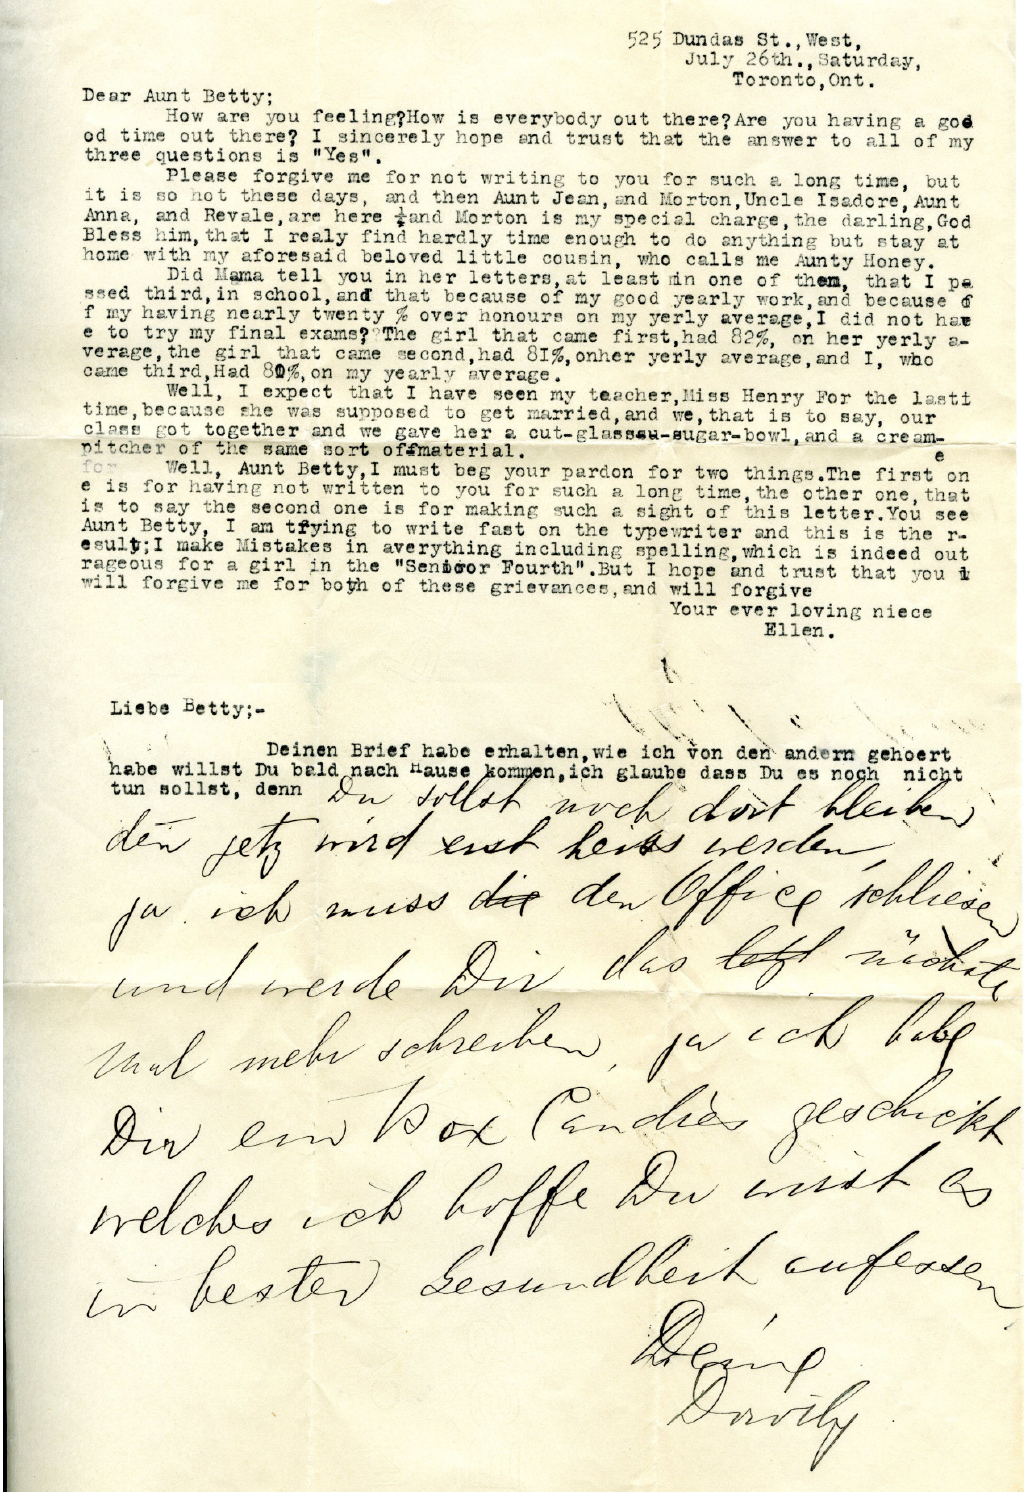 525 Dundas St.,West,
July 26th.,Saturday,
Toronto,Ont.
Dear Aunt Betty;
How are you feeling?How is everybody out there?Are you having a goo
od time out there? I sincerely hope and trust that the answer to all of my
three questions is "Yes".
Please forgive me for not writing to you for such a long time, but
it is so hot these days, and then Aunt Jean,and Morton,Uncle Isadore,Aunt
Anna, and Revale,are here and Morton is my special charge,the darling,God
Bless him,that I realy find hardly time enough to do anything but stay at
home with my aforesaid beloved little cousin, who calls me Aunty Honey.
Did Mama tell you in her letters,at least in one of them, that I pa
ssed third,in school,and that because of my good yearly work,and because of
f my having nearly twenty % over honours on my yerly average,I did not hav
e to try my final exams? The girl that came first,had 82%, on her yerly a-
verage,the girl that came second,had 81%,onher yerly average,and I, who
came third,Had 80%,on my yearly average.
Well, I expect that I have seen my teacher,Miss Henry For the lasti
time,because she was supposed to get married,and we,that is to say, our
class got together and we gave her a cut-glass-sugar-bowl,and a cream-
pitcher of the same sort of material.
for Well, Aunt Betty,I must beg your pardon for two things.The first on e
e is for having not written to you for such a long time,the other one,that
is to say the second one is for making such a sight of this letter.You see
Aunt Betty, I am trying to write fast on the typewriter and this is the r-
esult;I make Mistakes in averything including spelling,which is indeed out
rageous for a girl in the "Senior Fourth".But I hope and trust that you
will forgive me for both of these grievances,and will forgive
Your ever loving niece
Ellen.
Liebe Betty;-
Deinen Brief habe erhalten,wie ich von den andern gehoert
habe willst Du bald nach Hause kommen,ich glaube dass Du es noch nicht
tun sollst, denn Du sollst noch dort bleiben
den̄ jetz wird erst heiss werden,
ja ich muss die den Office schliesen
und werde Dir das letzt nächste
mal mehr schreiben, ja ich habe
Dir ein Box Candies geschickt
welches ich hoffe Du wirst es
in bester Gesundheit aufessen
Deine